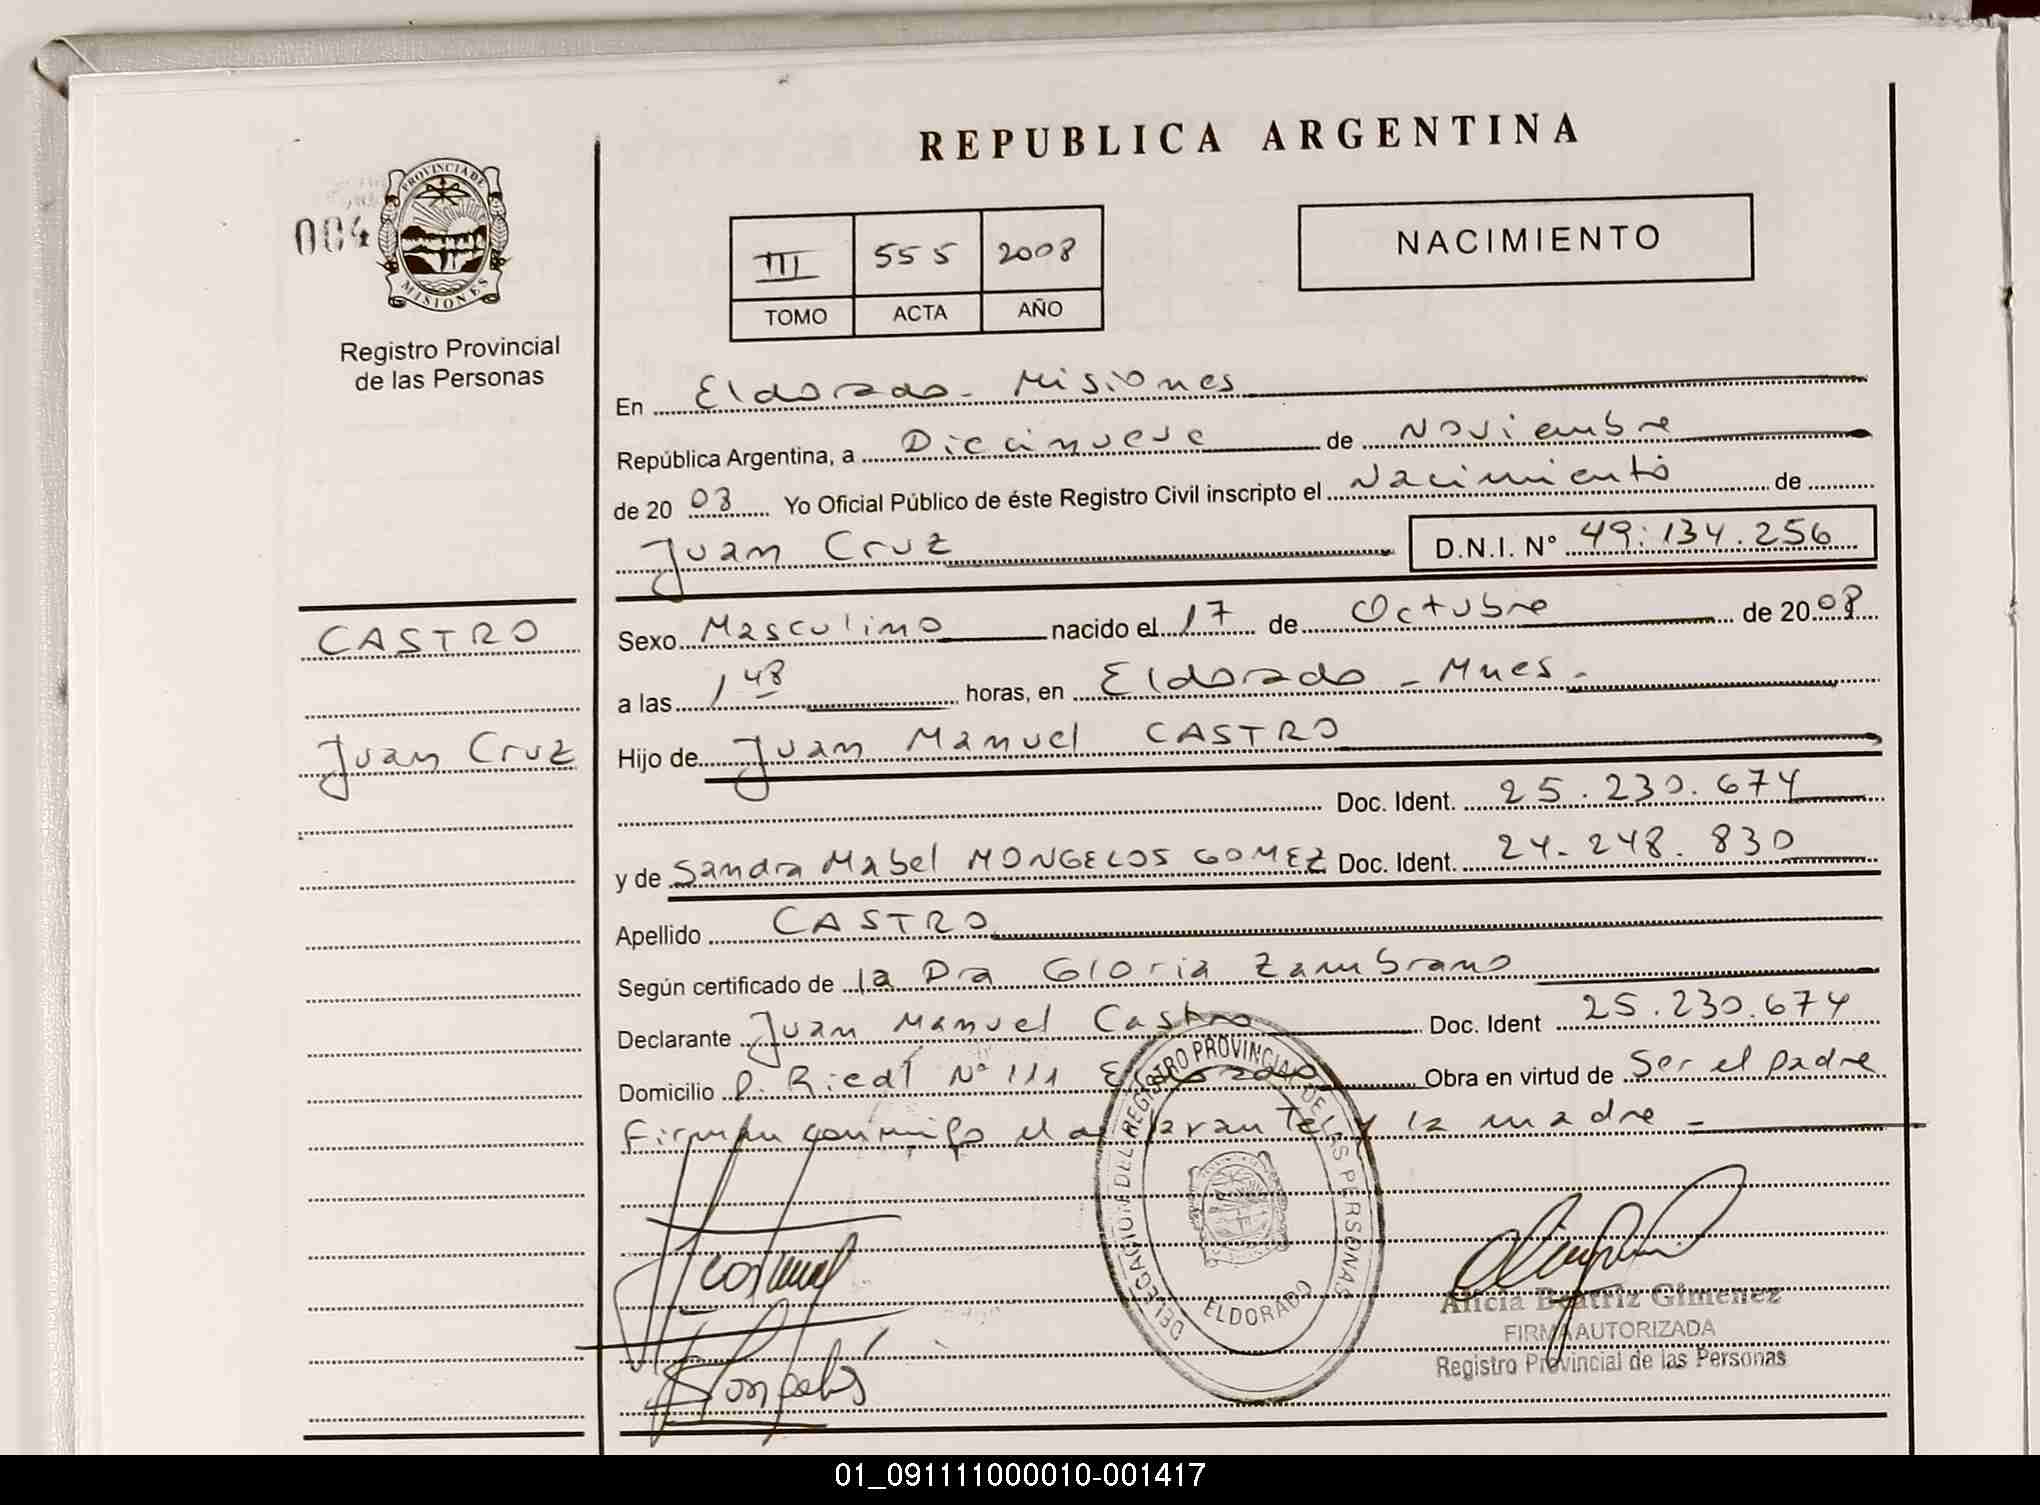 REPUBLICA ARGENTINA
004
PROVINCIA DE
MISIONES
Registro Provincial
de las Personas
NACIMIENTO
III 555 2008
TOMO ACTA AÑO
En Eldorado - Misiones
República Argentina, a Diecinueve de Noviembre
de 2008 Yo Oficial Público de éste Registro Civil inscripto el Nacimiento de
Juan Cruz D.N.I. N° 49.134.256
CASTRO
Juan Cruz
Sexo Masculino nacido el 17 de Octubre de 2008
a las 1 48 horas, en Eldorado - Mnes -
Hijo de Juan Manuel CASTRO
Doc. Ident. 25.230.674
y de Sandra Mabel MONGELOS GOMEZ Doc. Ident. 24.248.830
Apellido CASTRO
Según certificado de la Dra Gloria Zambrano
Declarante Juan Manuel Castro Doc. Ident 25.230.674
Domicilio P. Riedl N° 111 Eldorado Obra en virtud de Ser el padre
Firman conmigo el declarante y la madre -
DELEGACION DEL REGISTRO PROVINCIAL DE LAS PERSONAS
ELDORADO
Alicia Beatriz Gimenez
FIRMA AUTORIZADA
Registro Provincial de las Personas
01_091111000010-001417